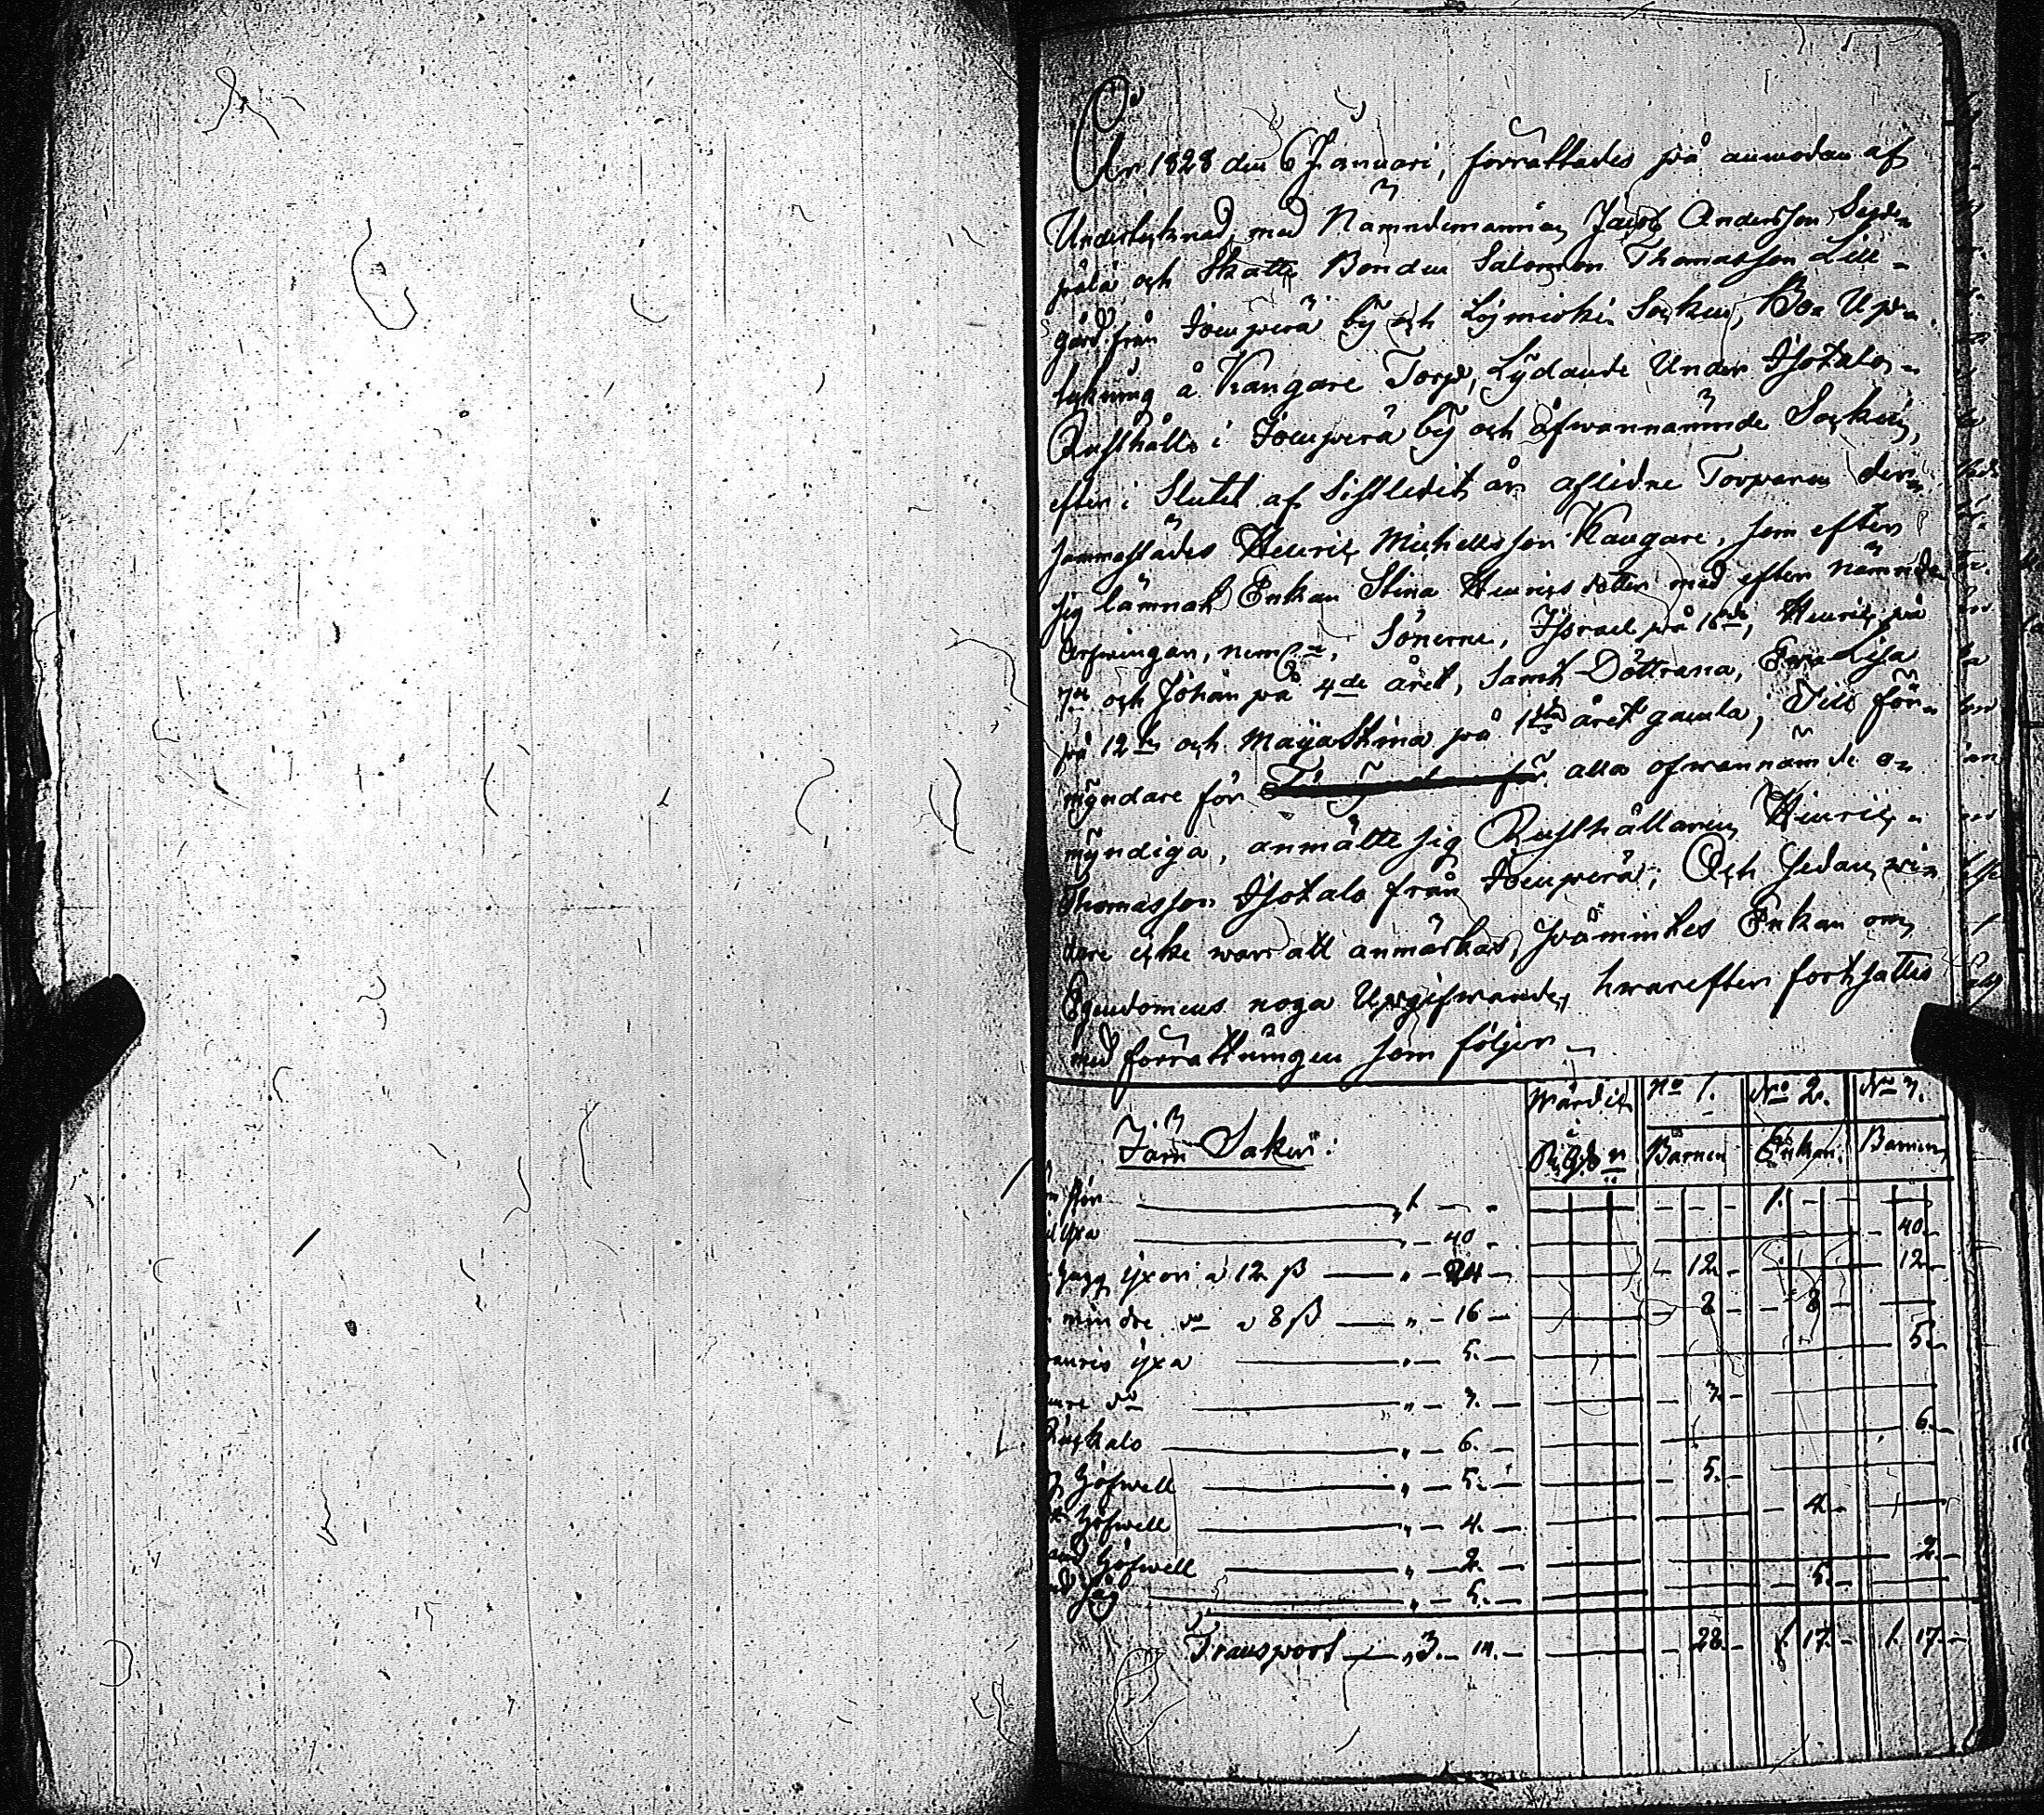 År 1828 den 6 Januari, förrättades på anmodan af
Underteknad, med Nämndemannen Jacob Andersson Seppä-
pälä och Skatte Bonden Salomon Thomasson Lill-
gård från Joenperä by och Loimjoki Socken, Bo Up-
tekning å Kangare Torp, Lydande Under Isotalo
Rusthålls i Joenperä by och åfwannämnde Socken,
efter i Slutet af Sistledit år aflidne Torparen der-
sammastädes Henric Michelsson Kangare, som efter
sig lämnat Enkan Stina Henricsdotter med efter nämnde
Arfwingar, neml:n, Sönerne, Israel på 16de, Henric på
7de och Johan på 4de året, Samt Döttrarna, Eva Lisa
på 12te och Maija Stina på 1sta året gamla; Till för-
myndare för alla ofwannämde o-
myndiga, anmälte sig Rusthållaren Henric
Thomasson Isotalo från Joenperä; Och sedan wi-
dare icke war att anmärkas, påmintes Enkan om
Egendomens noga Upgifwande, hwarefter fortsattes
med förrättningen som följer
Järn Saker: Wärdit No 1. No 2. No 3.
Barnen Enkan Barnen
stör 1. - - 1. - -
yxa - 40 - - 40 -
hugg yxor a 12 ß - 24 - - 12 - - 12 -
mindre do a 8 ß - 16 - - 8 - - 8 -
yxa - 5. - 5 -
do - 3. - - 3 -
- 6. - 6. -
Höfwell - 5. - - 5. -
Höfwell - 4. - - 4 -
Höfwell - 2 - 2 -
Såg - 5. - - 5 -
Transport 3. 14. - - 28. - 1. 17. - 1. 17. -